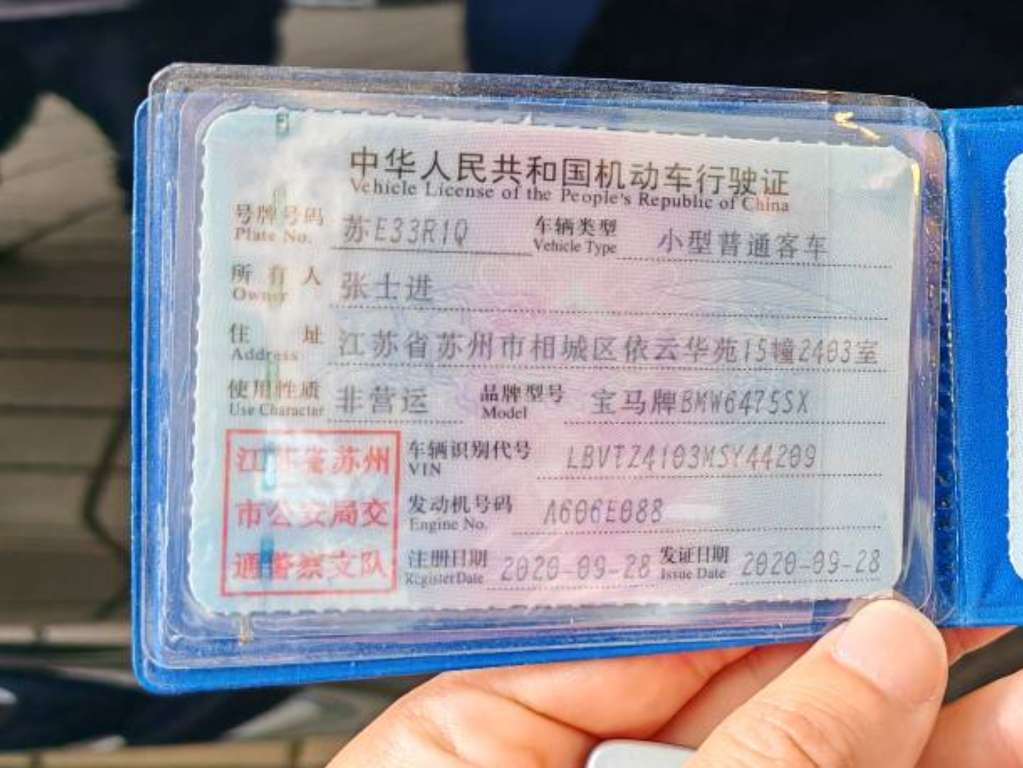 中华人民共和国机动车行驶证
Vehicle License of the People's Republic of China
号牌号码 苏E33R1Q 车辆类型 小型普通客车
Plate No. Vehicle Type
所有人 张士进
Owner
住址 江苏省苏州市相城区依云华苑15幢2403室
Address
使用性质 非营运 品牌型号 宝马牌BMW6475SX
Use Character Model
江苏省苏州
市公安局交
通警察支队
车辆识别代号 LBVTZ4103MSY44209
VIN
发动机号码 A606E088
Engine No.
注册日期 2020-09-28 发证日期 2020-09-28
Register Date Issue Date